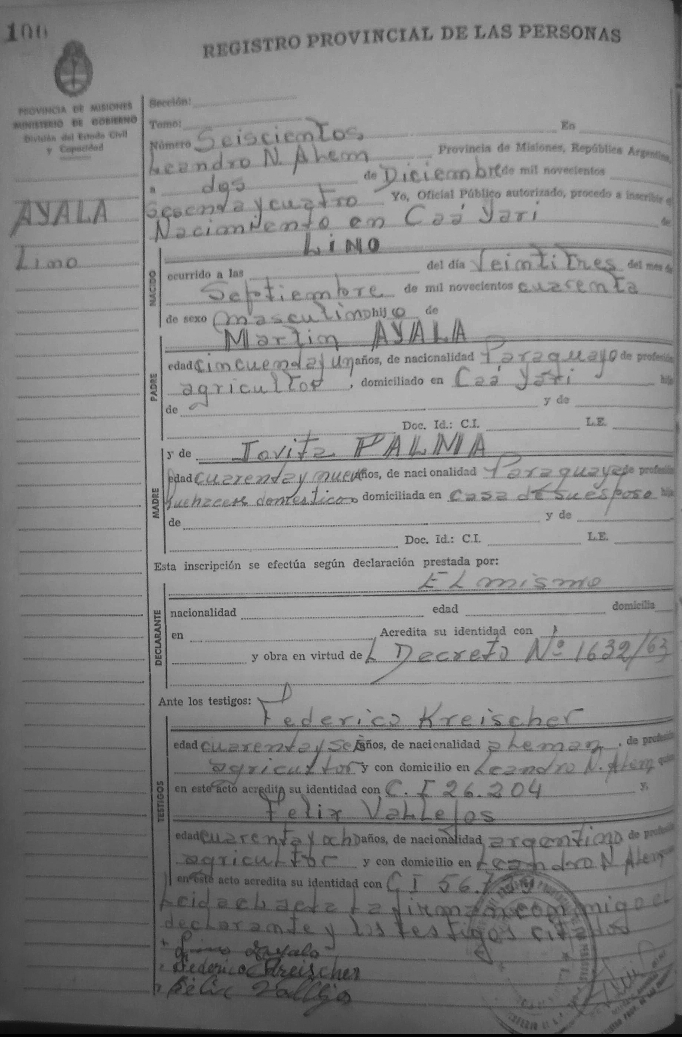 100
REGISTRO PROVINCIAL DE LAS PERSONAS
PROVINCIA DE MISIONES
MINISTERIO DE GOBIERNO
División del Estado Civil
y Capacidad
AYALA
Lino
Sección:
Tomo: En
Número Seiscientos
Leandro N. Alem Provincia de Misiones, República Argentina,
a dos de Diciembre de mil novecientos
Sesenta y cuatro Yo, Oficial Público autorizado, procedo a inscribir el
Nacimiento en Caá Yarí de
LINO
NACIDO
ocurrido a las del día Veintitres del mes de
Septiembre de mil novecientos cuarenta
de sexo masculino hijo de
Martin AYALA
PADRE
edad cincuenta y un años, de nacionalidad Paraguayo de profesión
agricultor, domiciliado en Caá Yarí hijo
de y de
Doc. Id.: C.I. L.E.
y de Jovita PALMA
MADRE
edad cuarenta y nueve años, de nacionalidad Paraguaya de profesión
quehaceres domesticos domiciliada en casa de su esposo hija
de y de
Doc. Id.: C.I. L.E.
Esta inscripción se efectúa según declaración prestada por:
EL mismo
DECLARANTE
nacionalidad edad domicilia
en Acredita su identidad con
y obra en virtud de L Decreto Nº 1632/63
Ante los testigos:
Federico Kreischer
TESTIGOS
edad cuarenta y seis años, de nacionalidad aleman, de profesión
agricultor y con domicilio en Leandro N. Alem quien
en este acto acredita su identidad con C. I 26.204 y,
Felix Vallejos
edad cuarenta y ocho años, de nacionalidad argentino de profesión
agricultor y con domicilio en Leandro N Alem quien
en este acto acredita su identidad con C I 56.
Leida el acta la firman conmigo el
declarante y los testigos citados
Lino Ayala
Federico Kreischer
Felix Vallejo